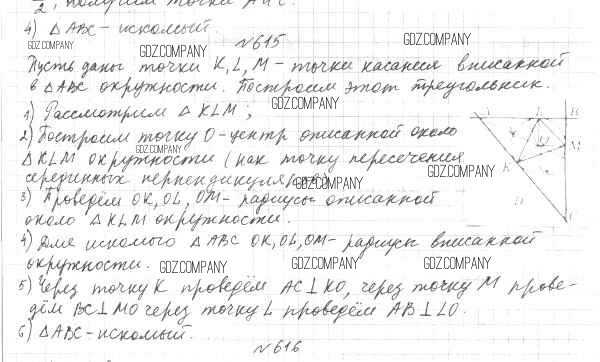 2, получим точки A и C.
4) △ABC - искомый.
№615
Пусть даны точки K, L, M - точки касания вписанной
в △ABC окружности. Построим этот треугольник.
1) Рассмотрим △KLM;
2) Построим точку O - центр описанной около
△KLM окружности (как точку пересечения
серединных перпендикуляров)
3) Проведём OK, OL, OM - радиусы описанной
около △KLM окружности.
4) Для искомого △ABC OK, OL, OM - радиусы вписанной
окружности.
5) Через точку K проведём AC⊥KO, через точку M прове-
дём BC⊥MO через точку L проведём AB⊥LO.
6) △ABC - искомый.
№616
GDZ.COMPANY
GDZ.COMPANY
GDZ.COMPANY
GDZ.COMPANY
GDZ.COMPANY
GDZ.COMPANY
GDZ.COMPANY
GDZ.COMPANY
GDZ.COMPANY
GDZ.COMPANY
GDZ.COMPANY
L
B
M
K
C